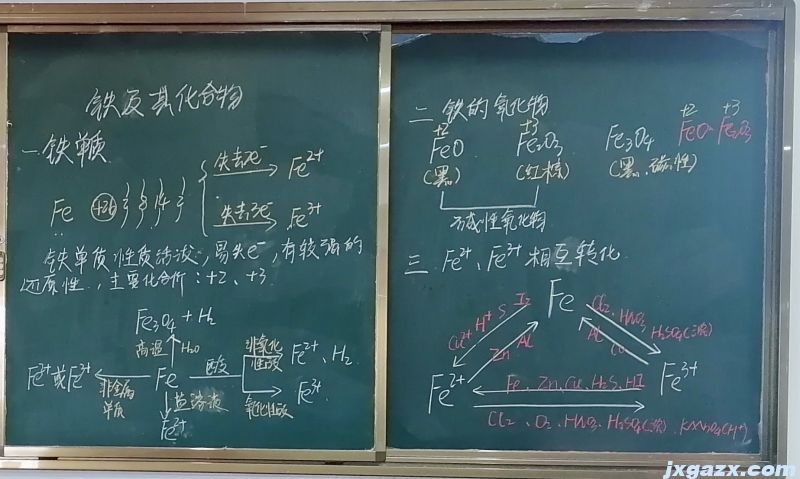 铁及其化合物
一 铁单质
Fe +26 2 8 14 2
失去2e⁻ Fe²⁺
失去3e⁻ Fe³⁺
铁单质性质活泼,易失e⁻,有较强的
还原性,主要化合价:+2、+3
Fe₃O₄ + H₂
高温 H₂O
Fe²⁺或Fe³⁺ 非金属单质 Fe 酸 非氧化性酸 Fe²⁺、H₂
氧化性酸 Fe³⁺
盐溶液
Fe²⁺
二 铁的氧化物
+2 +3 +2 +3
FeO Fe₂O₃ Fe₃O₄ FeO·Fe₂O₃
(黑) (红棕) (黑、磁性)
碱性氧化物
三 Fe²⁺、Fe³⁺相互转化
Fe
Cu²⁺ H⁺ S I₂
Zn Al
Cl₂、HNO₃、H₂SO₄(浓)
Al
Fe²⁺ Fe³⁺
Fe、Zn、Cu、H₂S、HI
Cl₂、O₂、HNO₃、H₂SO₄(浓)、KMnO₄(H⁺)
jxgazx.com